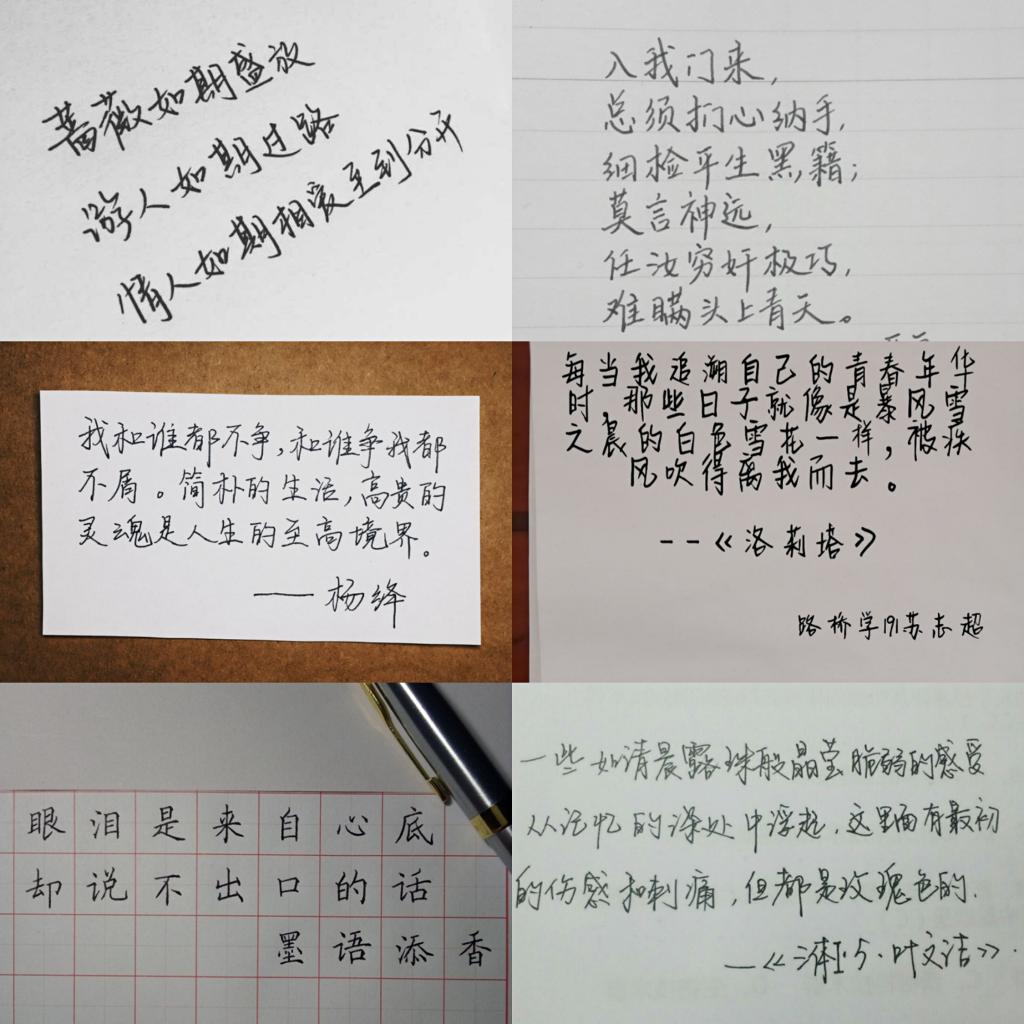 蔷薇如期盛放
游人如期过路
情人如期相爱至到分开
入我门来，
总须扪心纳手，
细检平生黑籍；
莫言神远，
任汝穷奸极巧，
难瞒头上青天。
我和谁都不争，和谁争我都
不屑。简朴的生活，高贵的
灵魂是人生的至高境界。
——杨绛
每当我追溯自己的青春年华
时，那些日子就像是暴风雪
之晨的白色雪花一样，被疾
风吹得离我而去。
--《洛莉塔》
路桥学191苏志超
眼泪是来自心底
却说不出口的话
墨语添香
一些如清晨露珠般晶莹脆弱的感受
从记忆的深处中浮起，这里面有最初
的伤感和刺痛，但都是玫瑰色的.
—《三体Ⅰ·叶文洁》.